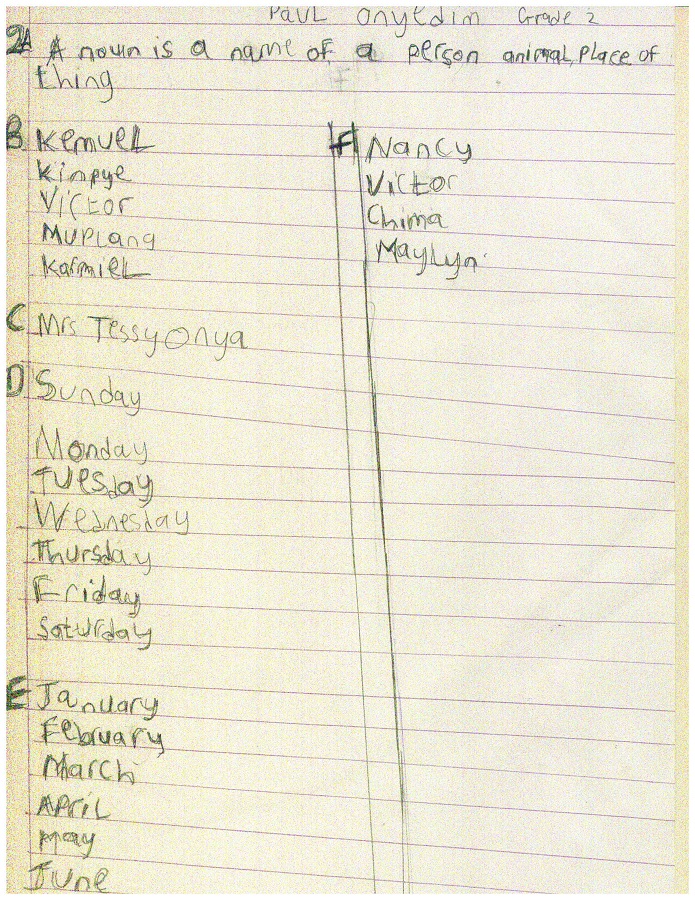 Paul Onyedim Grade 2
2A A noun is a name of a person animal, Place of
thing
B Kemuel
Kinpye
Victor
Muplang
Karmiel
C Mrs Tessy Onya
D Sunday
Monday
Tuesday
Wednesday
Thursday
Friday
Saturday
E January
February
March
April
May
June
F Nancy
Victor
Chima
Maylyn